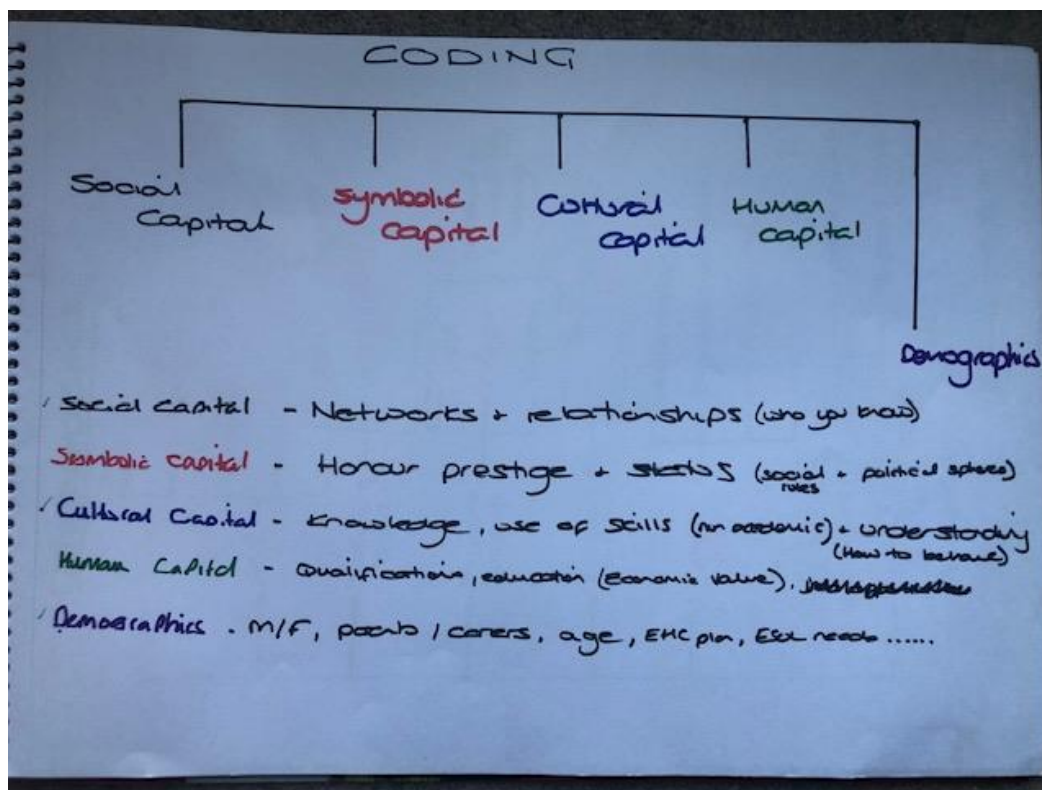 CODING
Social
Capital
Symbolic
Capital
Cultural
capital
Human
capital
Demographics
Social capital - Networks + relationships (who you know)
Symbolic capital - Honour prestige + status (social + political spheres)
rules
Cultural Capital - Knowledge, use of skills (non academic) + understanding
(How to behave)
Human Capital - Qualifications, education (Economic value),
Demographics - M/F, / carers, age, EHC plan, needs ......